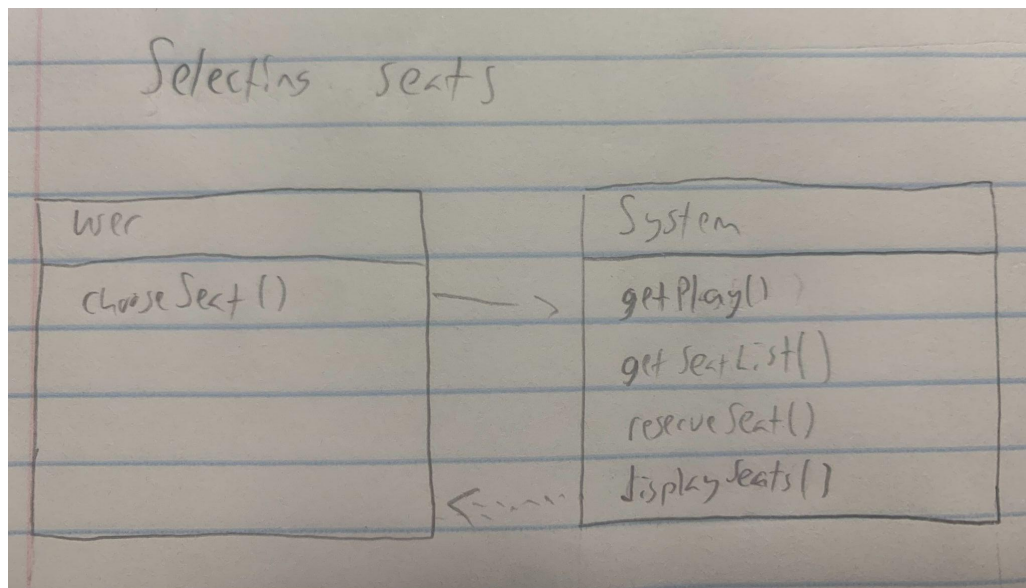 Selecting seats
user
chooseSeat()
System
getPlay()
getSeatList()
reserveSeat()
displaySeats()